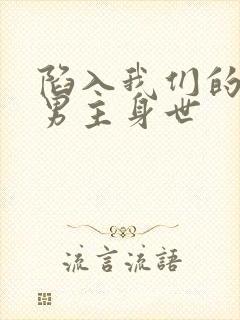 陷入我们的
男主身世
流言流語